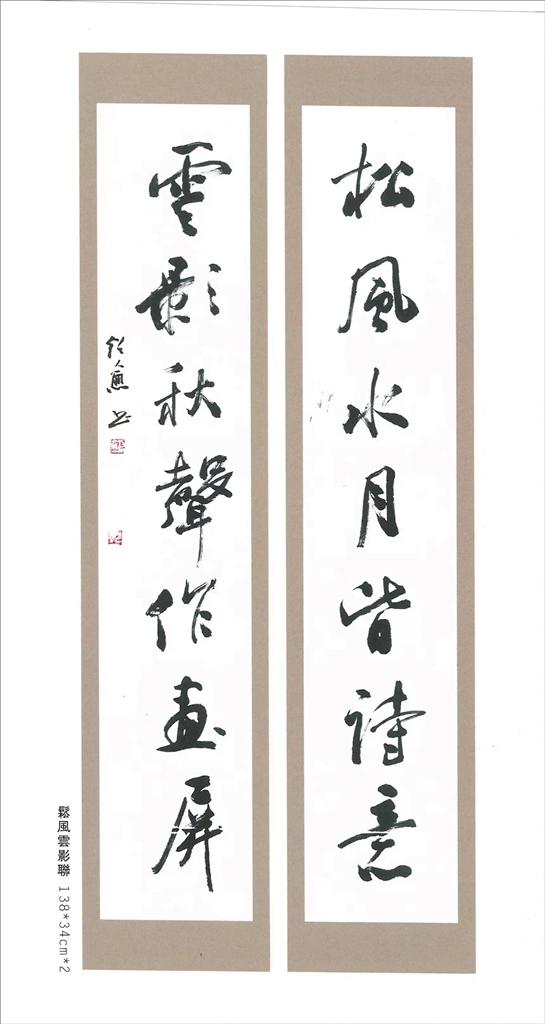 松風水月皆詩意
雲影秋聲作畫屏
鬆風雲影聯 138*34cm*2